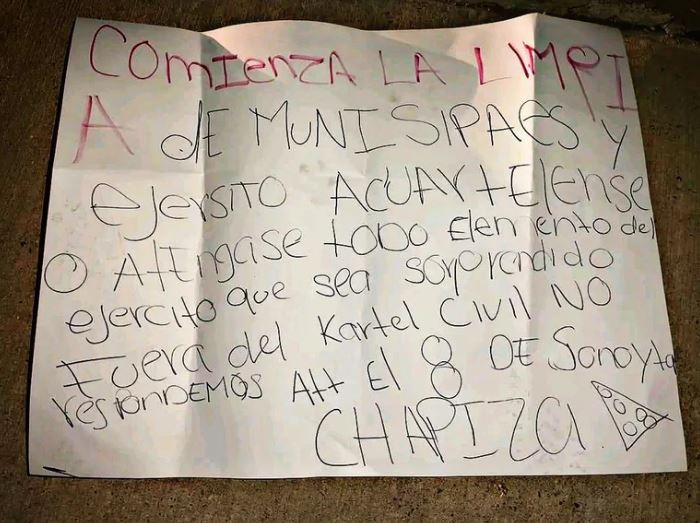 COMIENZA LA LIMPI
A dE MUNISIPAES y
EJERSITO ACUARtELENSE
O AtENGASE tODO ElEmENtO del
EJERCItO que sea sorprendido
Fuera del Kartel Civil NO
respONDEMOS Att El 8 DE Sonoyta
CHAPIZA